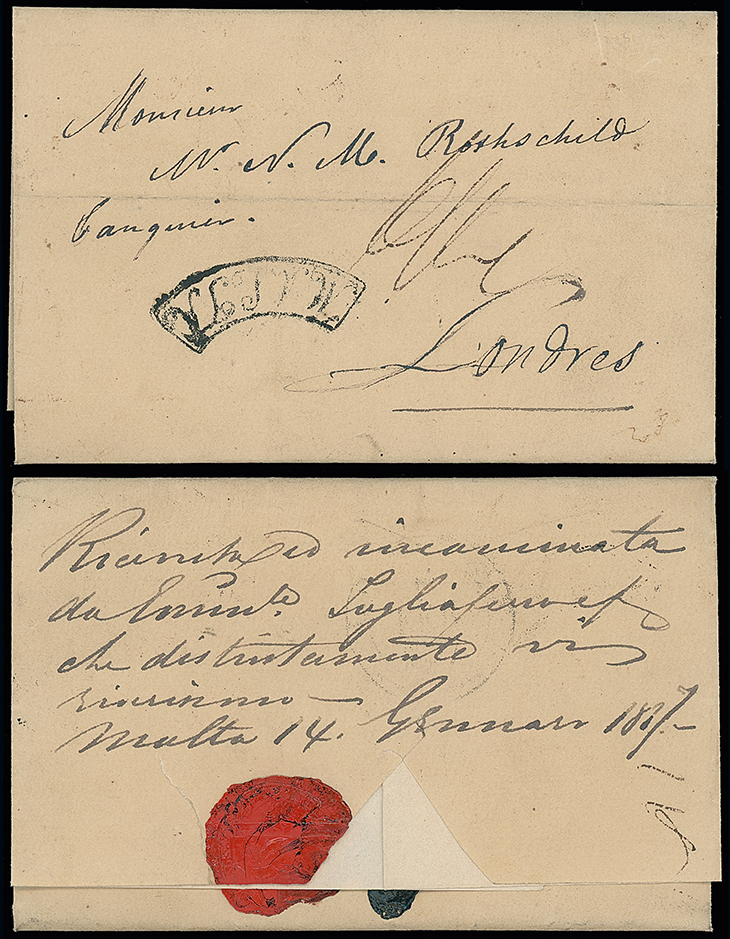 Monsieur
Mr. N. M. Rothschild
banquier.
MALTA
Londres
Ricevuta ed incaminata
da Emmle. Tagliaferro e f
che distintamente vi
riveriscono —
Malta 14. Gennaro